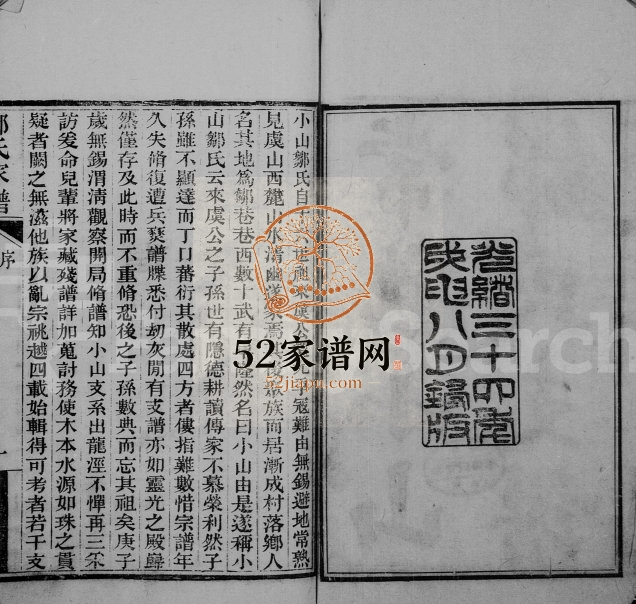 光緒三十四年
戊申八月版
小山鄒氏自來虞公寇難由無錫避地常熟
見虞山西麓山水清幽家焉族而居漸成村落鄉人
名其地為鄒巷巷西數十武有隆然名曰小山由是遂稱小
山鄒氏云來虞公之子孫世有隱德耕讀傳家不慕榮利然子
孫雖不顯達而丁口蕃衍其散處四方者僂指難數惜宗譜年
久失脩復遭兵燹譜牒悉付刼灰閒有支譜亦如靈光之殿巋
然僅存及此時而不重脩恐後之子孫數典而忘其祖矣庚子
歲無錫渭淸觀察開局脩譜知小山支系出龍涇不憚再三采
訪爰命兒輩將家藏殘譜詳加蒐討務使木本水源如珠之貫
疑者闕之無濫他族以亂宗祧越四載始輯得可考者若干支
鄒氏家譜
序
52家谱网
52jiapu.com
Search